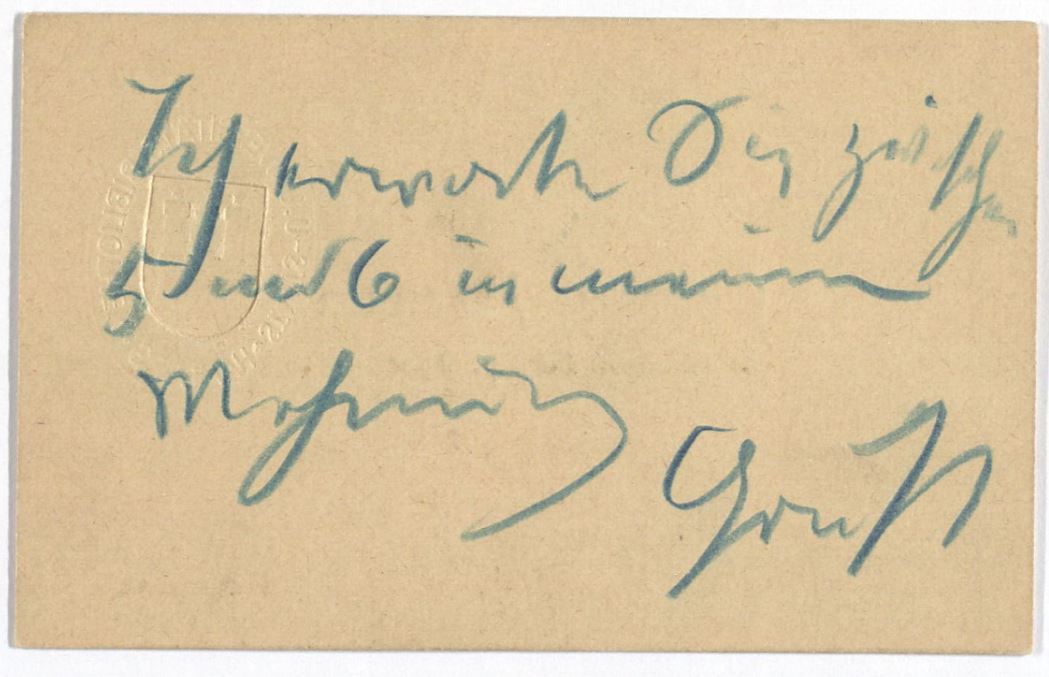 Ich erwarte Sie zwischen
5 und 6 in meiner
Wohnung
Gruß